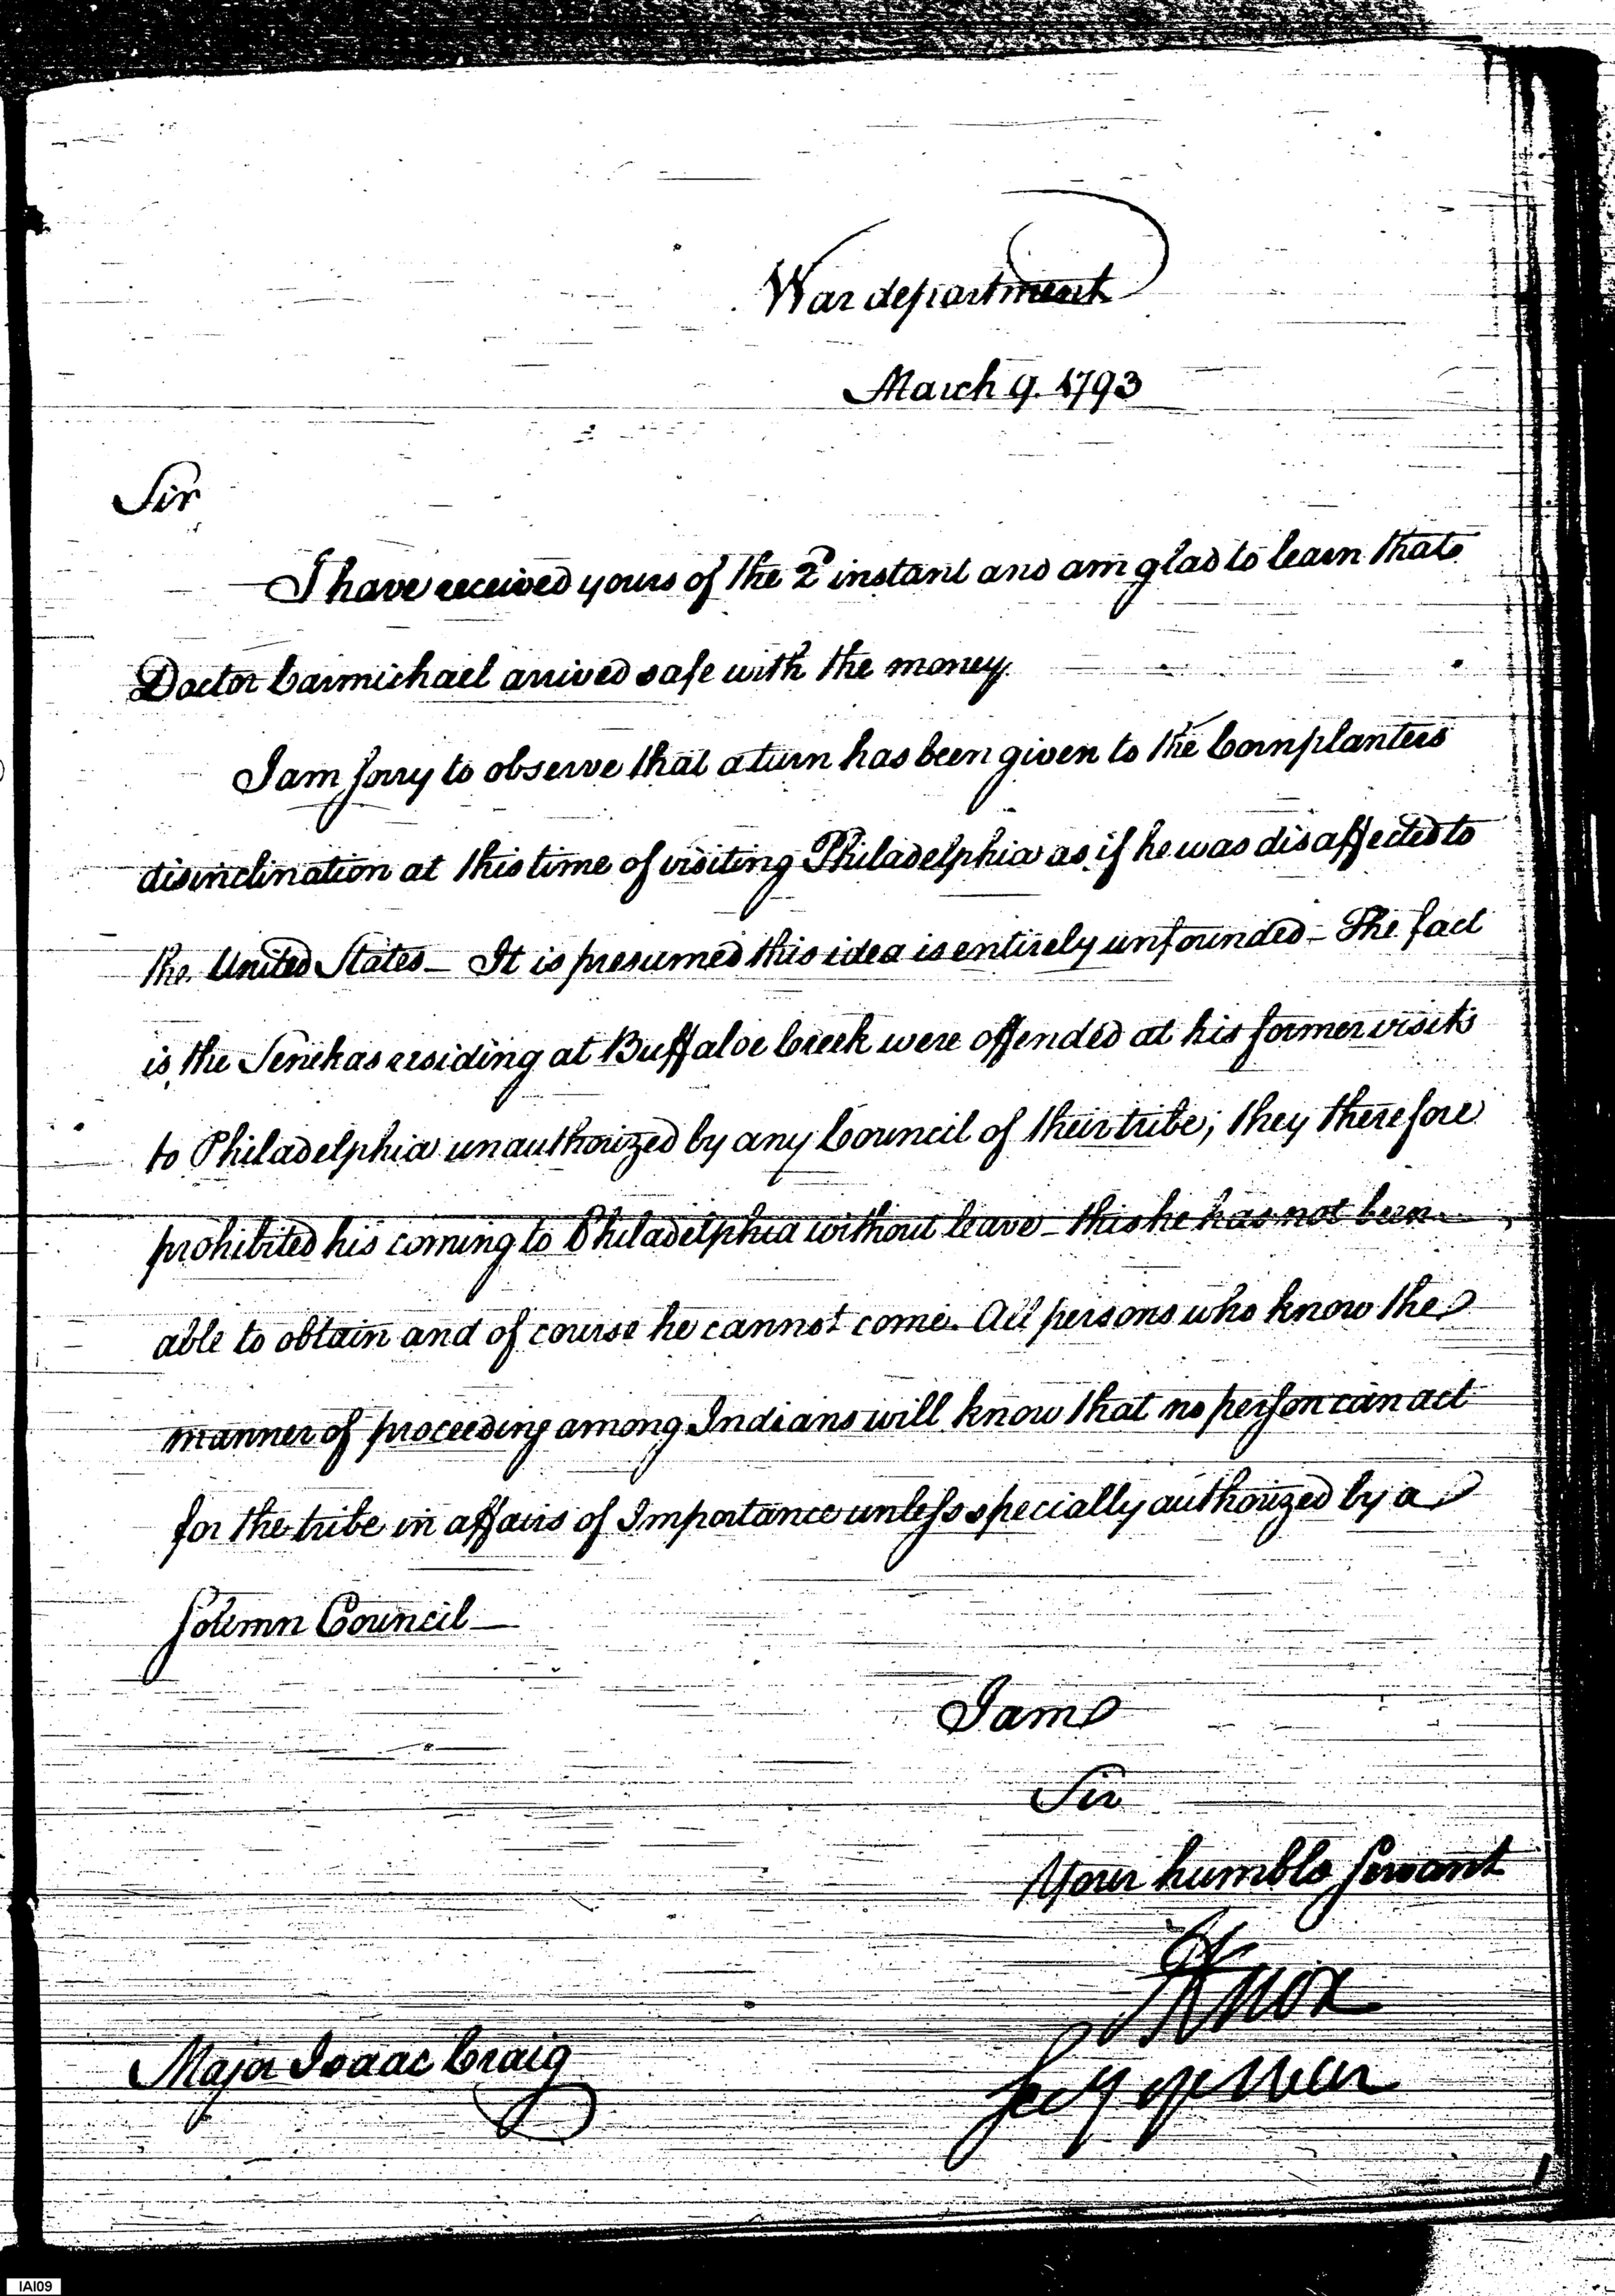 War department
March 9. 1793
Sir
I have received yours of the 2d instant and am glad to learn that
Doctor Carmichael arrived safe with the money.
I am sorry to observe that a turn has been given to the Cornplanters
disinclination at this time of visiting Philadelphia as if he was disaffected to
the United States_ It is presumed this idea is entirely unfounded_ The fact
is, the Senekas residing at Buffaloe Creek were offended at his former visits
to Philadelphia unauthorized by any Council of their tribe; they therefore
prohibited his coming to Philadelphia without leave_ this he has not been
able to obtain and of course he cannot come. All persons who know the
manner of proceeding among Indians will know that no person can act
for the tribe in affairs of Importance unless specially authorized by a
Solemn Council_
I am
Sir
Your humble Servant
HKnox
Secy of War
Major Isaac Craig
IAI09